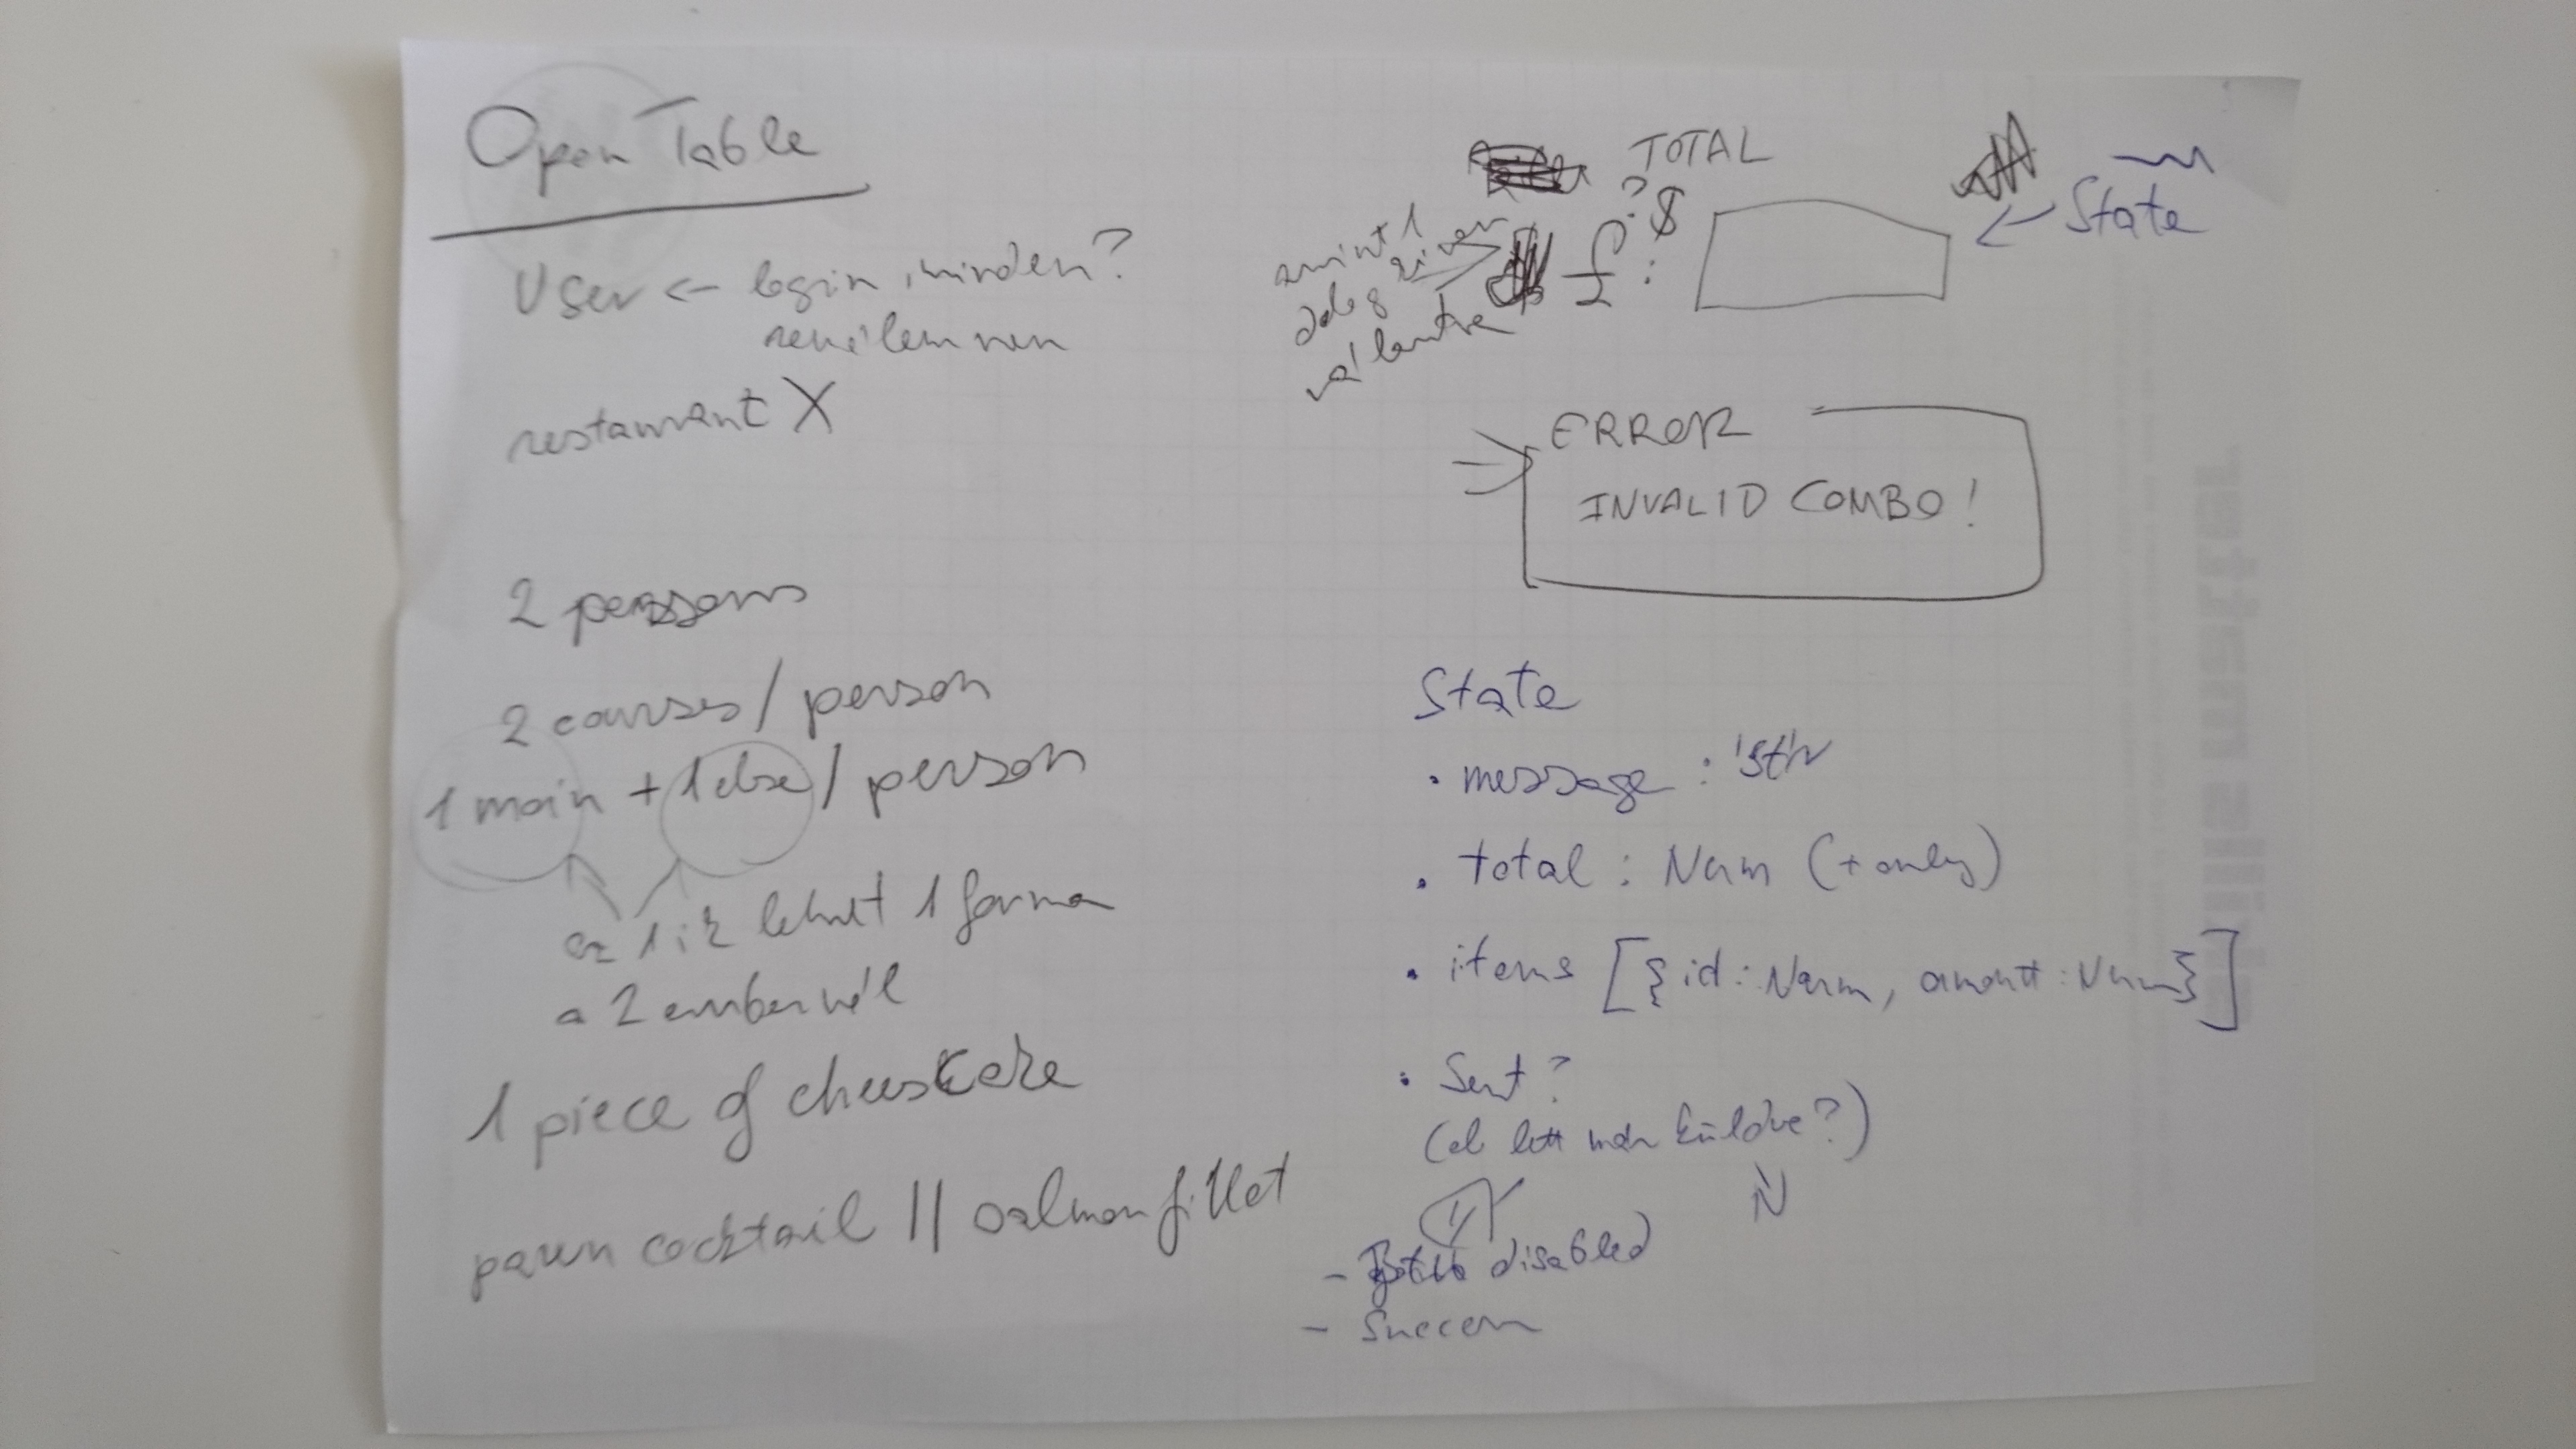 Open Table
User ← login, minden?
remélem nem
restaurant X
2 persons
2 courses / person
1 main + 1 else / person
az 1ik lehet 1 forma
a 2 embernél
1 piece of cheesecake
pawn cocktail || salmon fillet
TOTAL
? $
£ :
← State
mint 1
ERROR
INVALID COMBO!
State
• message : 'str'
• total : Num (+ only)
• items [{id: Num, amount: Num}]
• Sent?
(el lett már küldve?)
Y N
- disabled
- Success